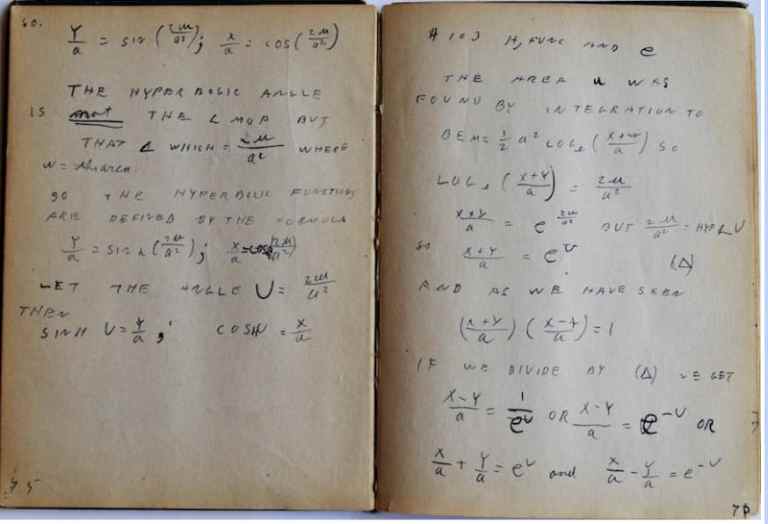 so.
Y/a = sin (2u/a²); x/a = cos (2u/a²)
THE HYPERBOLIC ANGLE
IS not THE ∠ MOP BUT
THAT ∠ WHICH = 2u/a² WHERE
u = the area
SO THE HYPERBOLIC FUNCTIONS
ARE DEFINED BY THE FORMULA
Y/a = sinh (2u/a²); x/a = cosh (2u/a²)
LET THE ANGLE U = 2u/a²
THEN
SINH U = Y/a; COSH U = X/a
75
# 103 H, FUNC AND e
THE AREA u WAS
FOUND BY INTEGRATION TO
BE M = 1/2 a² LOGe (x+y/a) SO
LOGe (x+Y/a) = 2u/a²
x+y/a = e^2u/a² BUT 2u/a² = HYP ∠ U
SO x+y/a = e^U (Δ)
AND AS WE HAVE SEEN
(x+y/a) (x-y/a) = 1
IF WE DIVIDE BY (Δ) WE GET
X-Y/a = 1/e^U OR X-Y/a = e^-U OR
X/a + Y/a = e^U and X/a - Y/a = e^-U